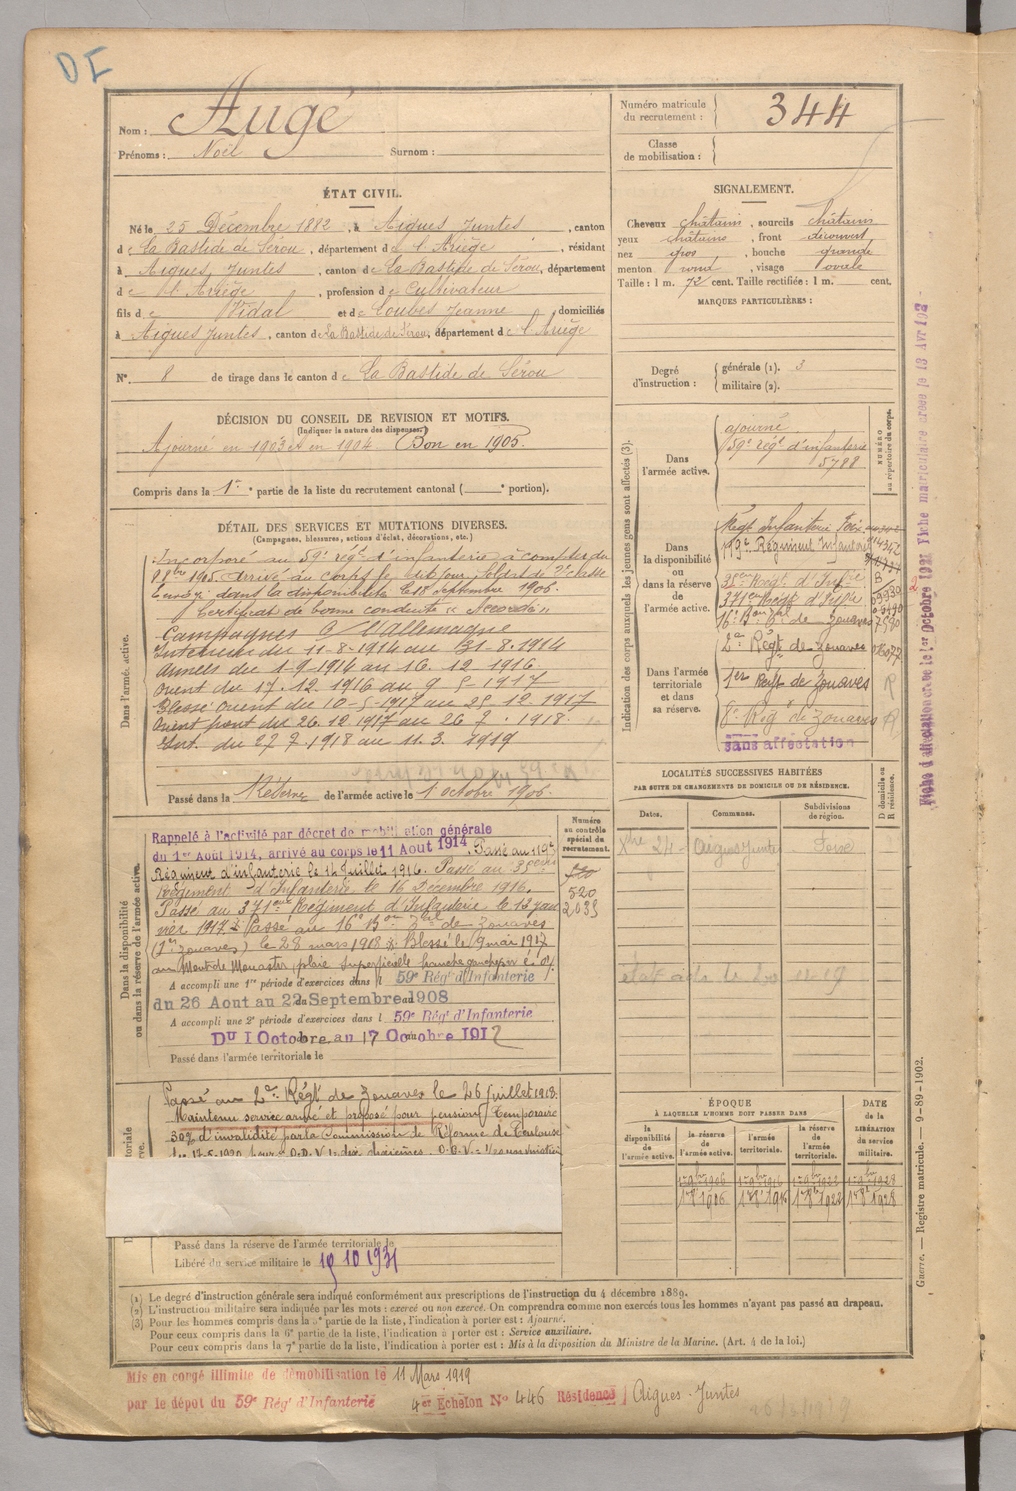 DI
Nom : Augé
Prénoms : Noël Surnom :
Numéro matricule du recrutement : 344
Classe de mobilisation :
ÉTAT CIVIL.
Né le 25 Décembre 1882, à Aigues Juntes, canton
de La Bastide de Sérou, département de l'Ariège, résidant
à Aigues Juntes, canton de La Bastide de Sérou, département
de l'Ariège, profession de Cultivateur
fils de Vidal et de Loubes Jeanne domiciliés
à Aigues Juntes, canton de La Bastide de Sérou, département de l'Ariège
N° 8 de tirage dans le canton de La Bastide de Sérou
SIGNALEMENT.
Cheveux châtain, sourcils châtain
yeux châtains, front découvert,
nez gros, bouche grande
menton rond, visage ovale
Taille : 1 m. 72 cent. Taille rectifiée : 1 m. cent.
MARQUES PARTICULIÈRES :
Degré d'instruction : générale (1). 3
militaire (2).
DÉCISION DU CONSEIL DE REVISION ET MOTIFS.
(Indiquer la nature des dispenses.)
Ajourné en 1903 et en 1904 Bon en 1905.
Compris dans la 1re partie de la liste du recrutement cantonal ( e portion).
DÉTAIL DES SERVICES ET MUTATIONS DIVERSES.
(Campagnes, blessures, actions d'éclat, décorations, etc.)
Dans l'armée active.
Incorporé au 59e régt d'infanterie à compter du
8 8bre 1905. Arrivé au corps le dit jour, soldat de 2e classe
Envoyé dans la disponibilité le 18 Septembre 1906.
Certificat de bonne conduite « Accordé »
Campagnes C/ l'Allemagne
Intérieur du 11-8-1914 au 31-8-1914
Armées du 1-9-1914 au 16.12.1916.
Orient du 17.12.1916 au 9 5-1917
Blessé Orient du 10-5-1917 au 25-12.1917
Orient front du 26.12.1917 au 26 7.1918.
Int. du 27 7.1918 au 11.3.1919
Passé dans la Réserve de l'armée active le 1 octobre 1906.
Indication des corps auxquels les jeunes gens sont affectés (3).
NUMÉRO au répertoire du corps.
Dans l'armée active.
ajourné
59e régt d'infanterie
5788
Dans la disponibilité ou dans la réserve de l'armée active.
Régt Infanterie Foix
119e Régiment Infanterie
35eme Régt d'Infrie
371eme Régt d'Infrie
16e Bon 3bel de Zouaves 7590
Dans l'armée territoriale et dans sa réserve.
2e Régt de Zouaves
1er Régt de Zouaves R
8e Régt de Zouaves R
sans affectation
Fiche d'affectation créée le 1er Octobre 1921 Fiche matriculaire créée le 19 Avr 192
LOCALITÉS SUCCESSIVES HABITÉES
PAR SUITE DE CHANGEMENTS DE DOMICILE OU DE RÉSIDENCE.
Dates. Communes. Subdivisions de région. D domicile ou R résidence.
Xbre 24 Aigues Juntes Foix
Dans la disponibilité ou dans la réserve de l'armée active.
Numéro au contrôle spécial du recrutement.
520
2035
Rappelé à l'activité par décret de mobilisation générale
du 1er Août 1914, arrivé au corps le 11 Aout 1914. Passé au 119e
Régiment d'infanterie le 14 Juillet 1916. Passé au 35eme
Régiment d'Infanterie le 16 Décembre 1916.
Passé au 371eme Régiment d'Infanterie le 12 jan
vier 1917. Passé au 16e Bon 3bel de Zouaves
(1er Zouaves) le 28 mars 1918 Blessé le 9 mai 1917
au Mont de Monastir, plaie superficielle hanche gauche
A accompli une 1re période d'exercices dans l 59e Régt d'Infanterie
du 26 Aout au 22 Septembre 1908
A accompli une 2e période d'exercices dans l 59e Régt d'Infanterie
Du 1 Octobre au 17 Octobre 1912
Passé dans l'armée territoriale le
Passé au 2e Régt de Zouaves le 26 Juillet 1918.
Maintenu service armé et proposé pour pension temporaire
30% d'invalidité par la Commission de Réforme de Toulouse
Passé dans la réserve de l'armée territoriale le
Libéré du service militaire le 19 10 1931
ÉPOQUE
À LAQUELLE L'HOMME DOIT PASSER DANS
la disponibilité de l'armée active. la réserve de l'armée active. l'armée territoriale. la réserve de l'armée territoriale.
DATE de la LIBÉRATION du service militaire.
Guerre. — Registre matricule. — 9-89-1902.
(1) Le degré d'instruction générale sera indiqué conformément aux prescriptions de l'instruction du 4 décembre 1889.
(2) L'instruction militaire sera indiquée par les mots : exercé ou non exercé. On comprendra comme non exercés tous les hommes n'ayant pas passé au drapeau.
(3) Pour les hommes compris dans la 5e partie de la liste, l'indication à porter est : Ajourné.
Pour ceux compris dans la 6e partie de la liste, l'indication à porter est : Service auxiliaire.
Pour ceux compris dans la 7e partie de la liste, l'indication à porter est : Mis à la disposition du Ministre de la Marine. (Art. 4 de la loi.)
Mis en congé illimité de démobilisation le 11 Mars 1919
par le dépôt du 59e Régt d'Infanterie 4er Echelon No 446 Résidence Aigues-Juntes